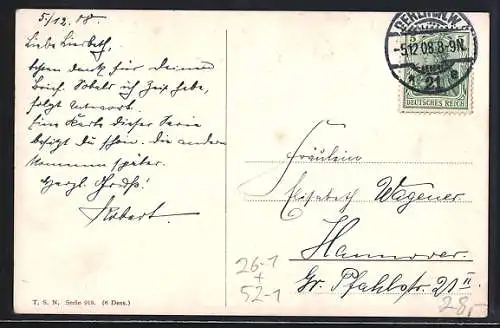 5/12. 08.
Liebe Lisbeth,
besten Dank für deinen
Brief. Sobald ich Zeit habe,
folgt Antwort.
Eine Karte dieser Serie
besitzt Du schon. die andern
kommen später.
Herzl. Gruß!
Robert.
T. S. N. Serie 918. (6 Dess.)
BERLIN N.W.
-5.12.08. 8-9N.
* 21 e
5 5
DEUTSCHES REICH
Fräulein
Elisabeth Wagener
Hannover.
Gr. Pfahlstr. 21 II
26-1
+
52-1
28,-